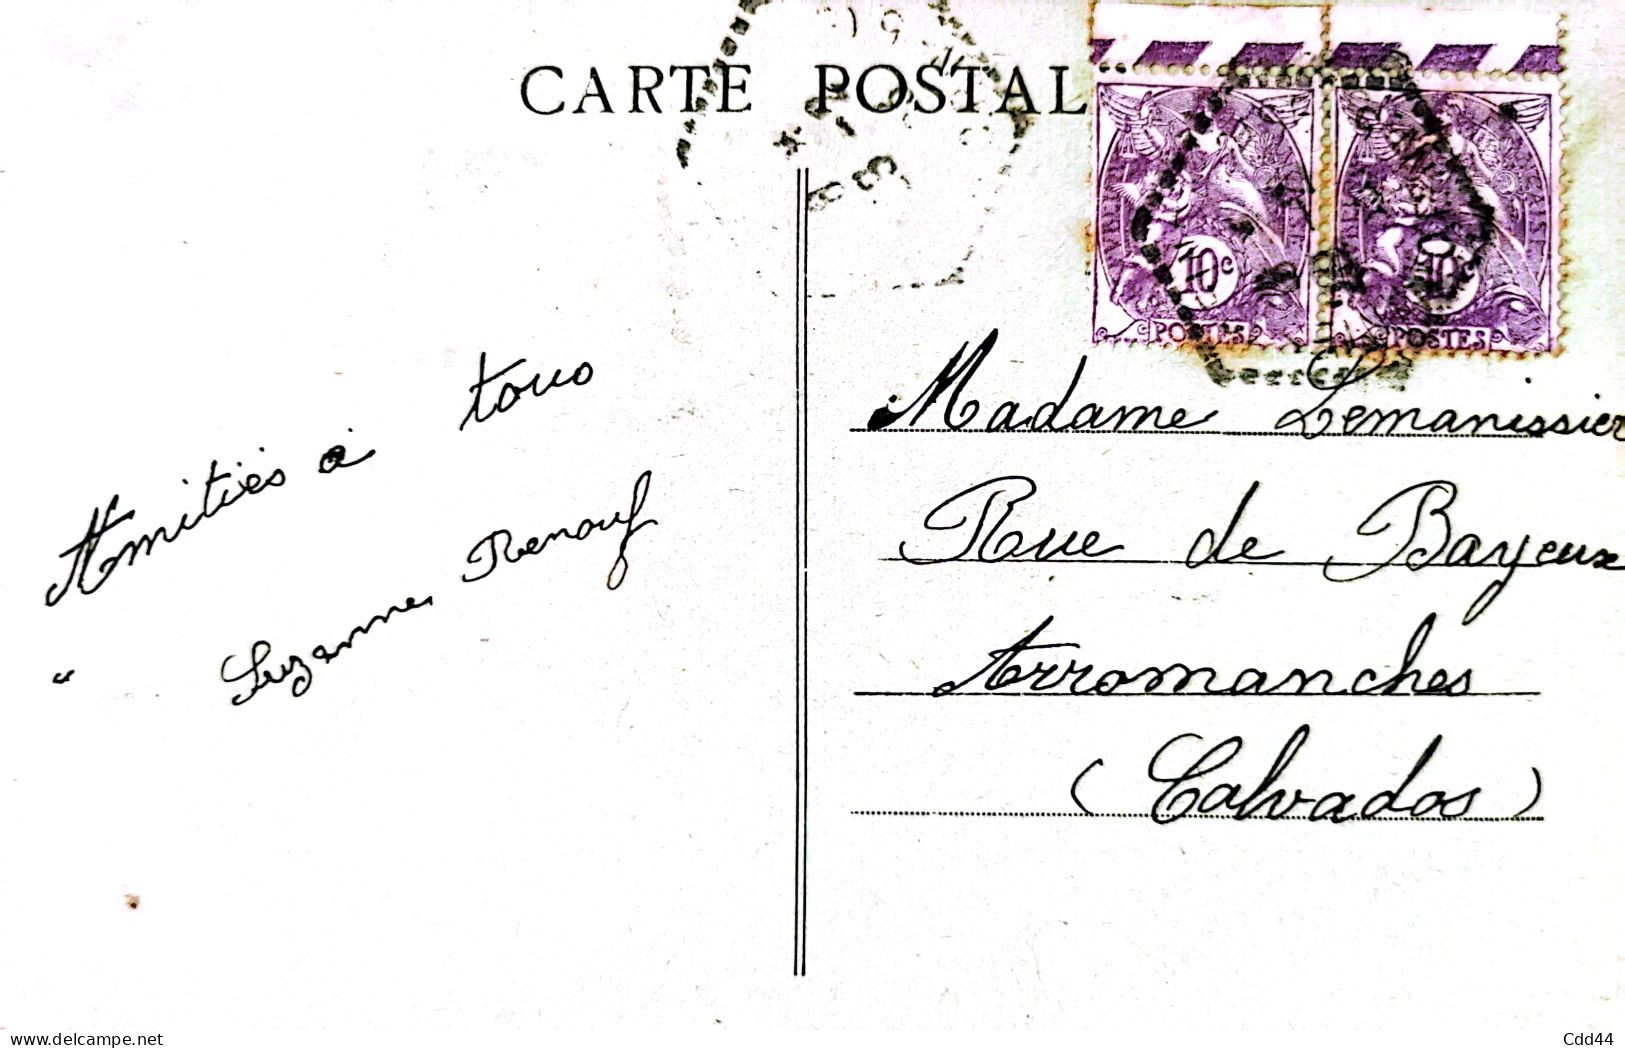 CARTE POSTAL
10c 10c
POSTES POSTES
Amitiés à tous
Suzanne Renouf
Madame Lemanissier
Rue de Bayeux
Arromanches
(Calvados)
delcampe.net
Cdd44